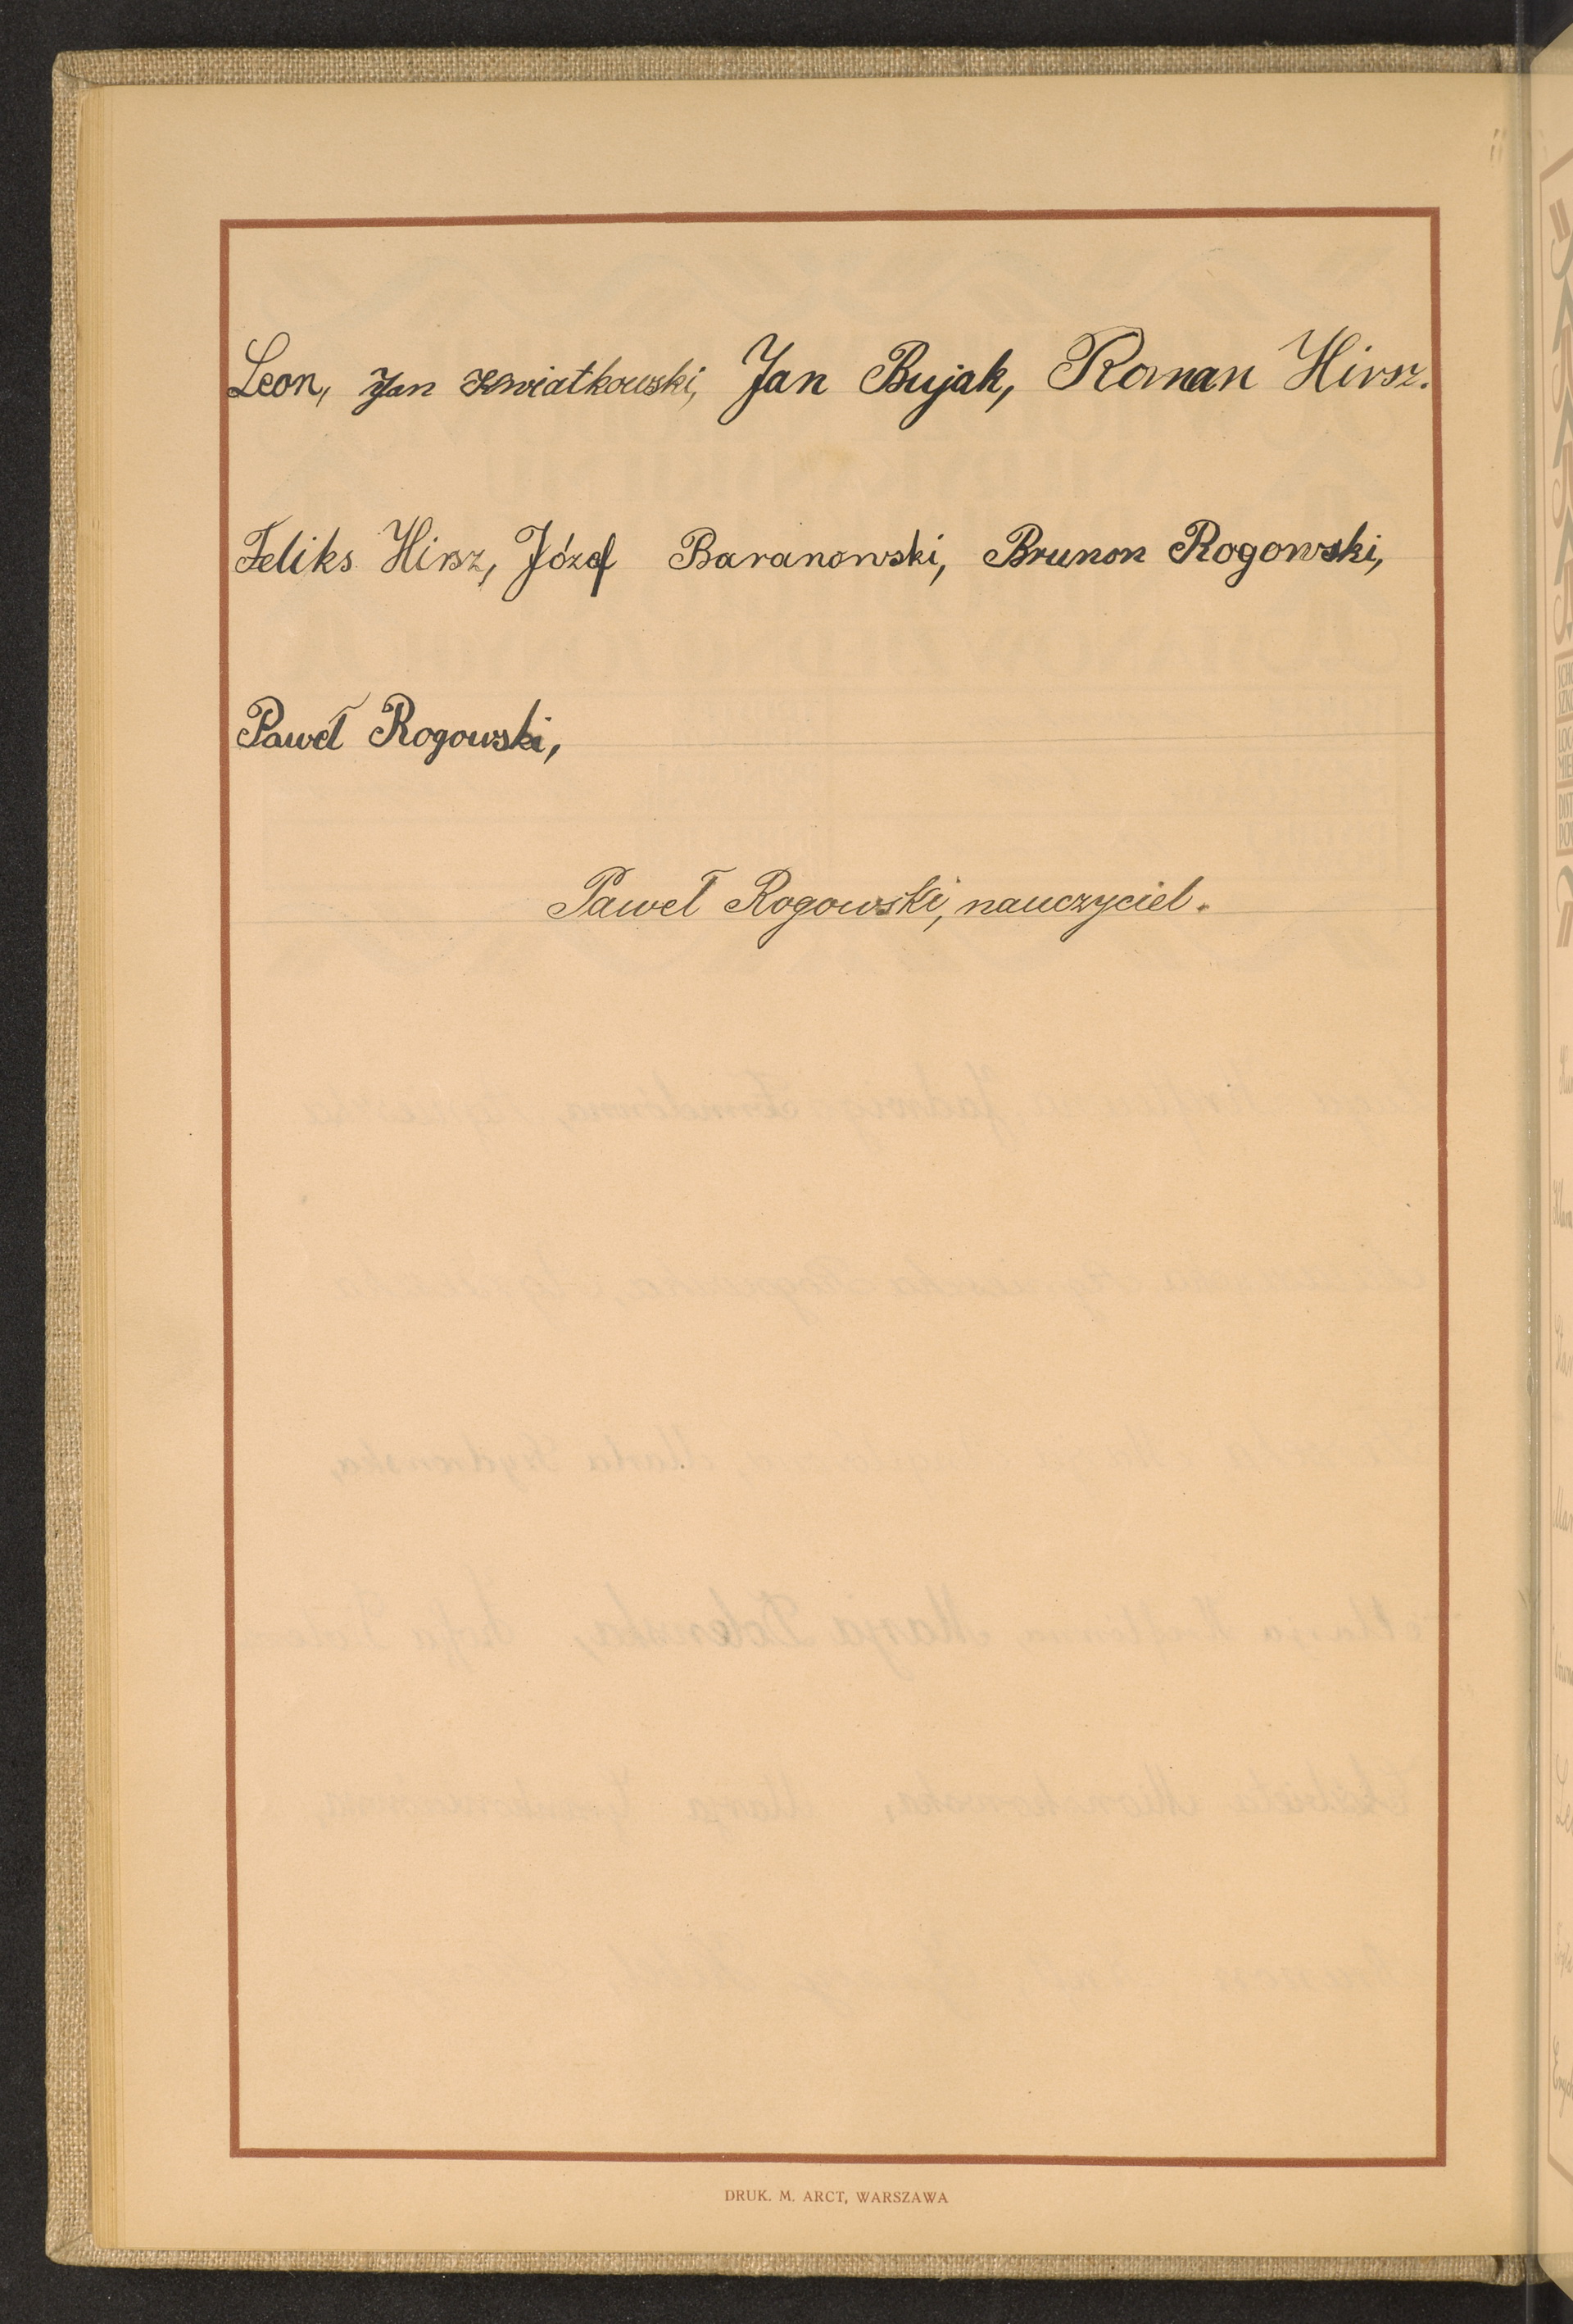 Leon, Jan Kwiatkowski, Jan Bujak, Roman Hirsz.
Feliks Hirsz, Józef Baranowski, Brunon Rogowski,
Paweł Rogowski,
Paweł Rogowski, nauczyciel.
DRUK. M. ARCT, WARSZAWA